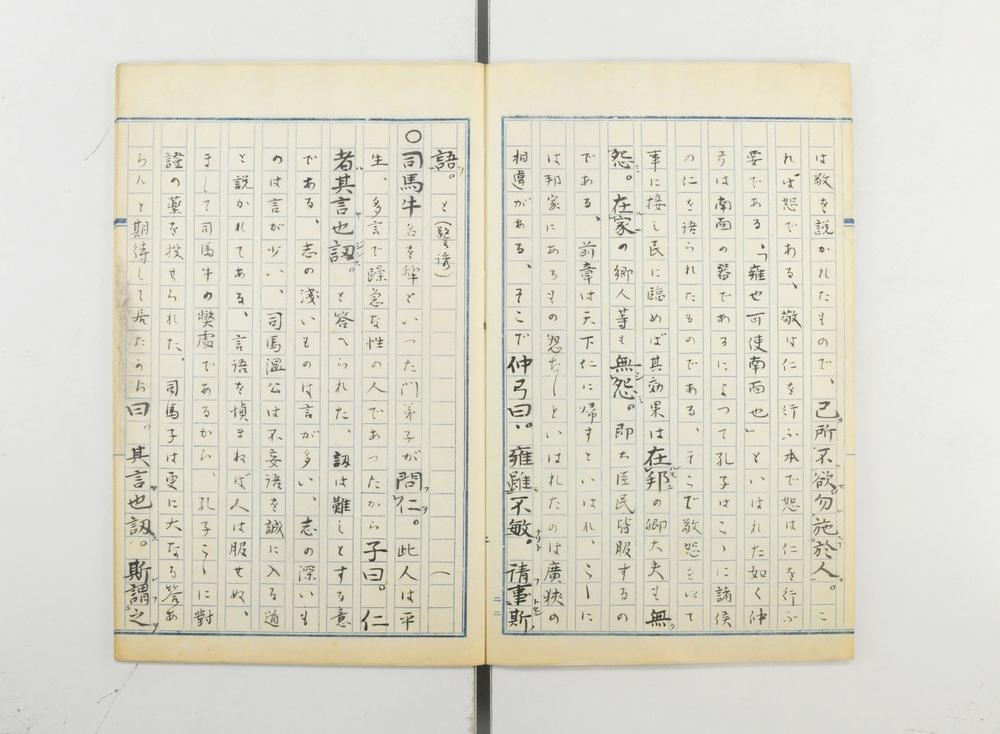 は敬を説かれたもので、己所不欲勿施於人。こ
れば恕である、敬は仁を行ふ本で恕は仁を行ふ
要である、「雍也可使南面也」といはれた如く仲
弓は南面の器であるによつて孔子はこゝに諸侯
の仁を語られたものである、そこで敬恕をいて
事に接し民に臨めば其効果は在邦の卿大夫も無
怨。在家の郷人等も無怨。即ち臣民皆服するの
である、前章は天下仁に帰すといはれ、こゝに
は邦家にあるもの怨なしといはれたのは廣狹の
相違がある、そこで仲弓曰。雍雖不敏。請事斯
語。と(警誘)
〇司馬牛名を犂といつた門弟子が問仁。此人は平
生、多言で躁急な性の人であつたから子曰。仁
者其言也訒。と答へられた、訒は難しとする意
である、志の淺いものは言が多い、志の深いも
のは言が少い、司馬溫公は不妄語を誠に入る道
と説かれてある、言語を愼まねば人は服せぬ、
まして司馬牛の弊處であるから、孔子こゝに對
證の藥を投せられた、司馬子は更に大なる答あ
らんと期待して居たから曰。其言也訒。斯謂之